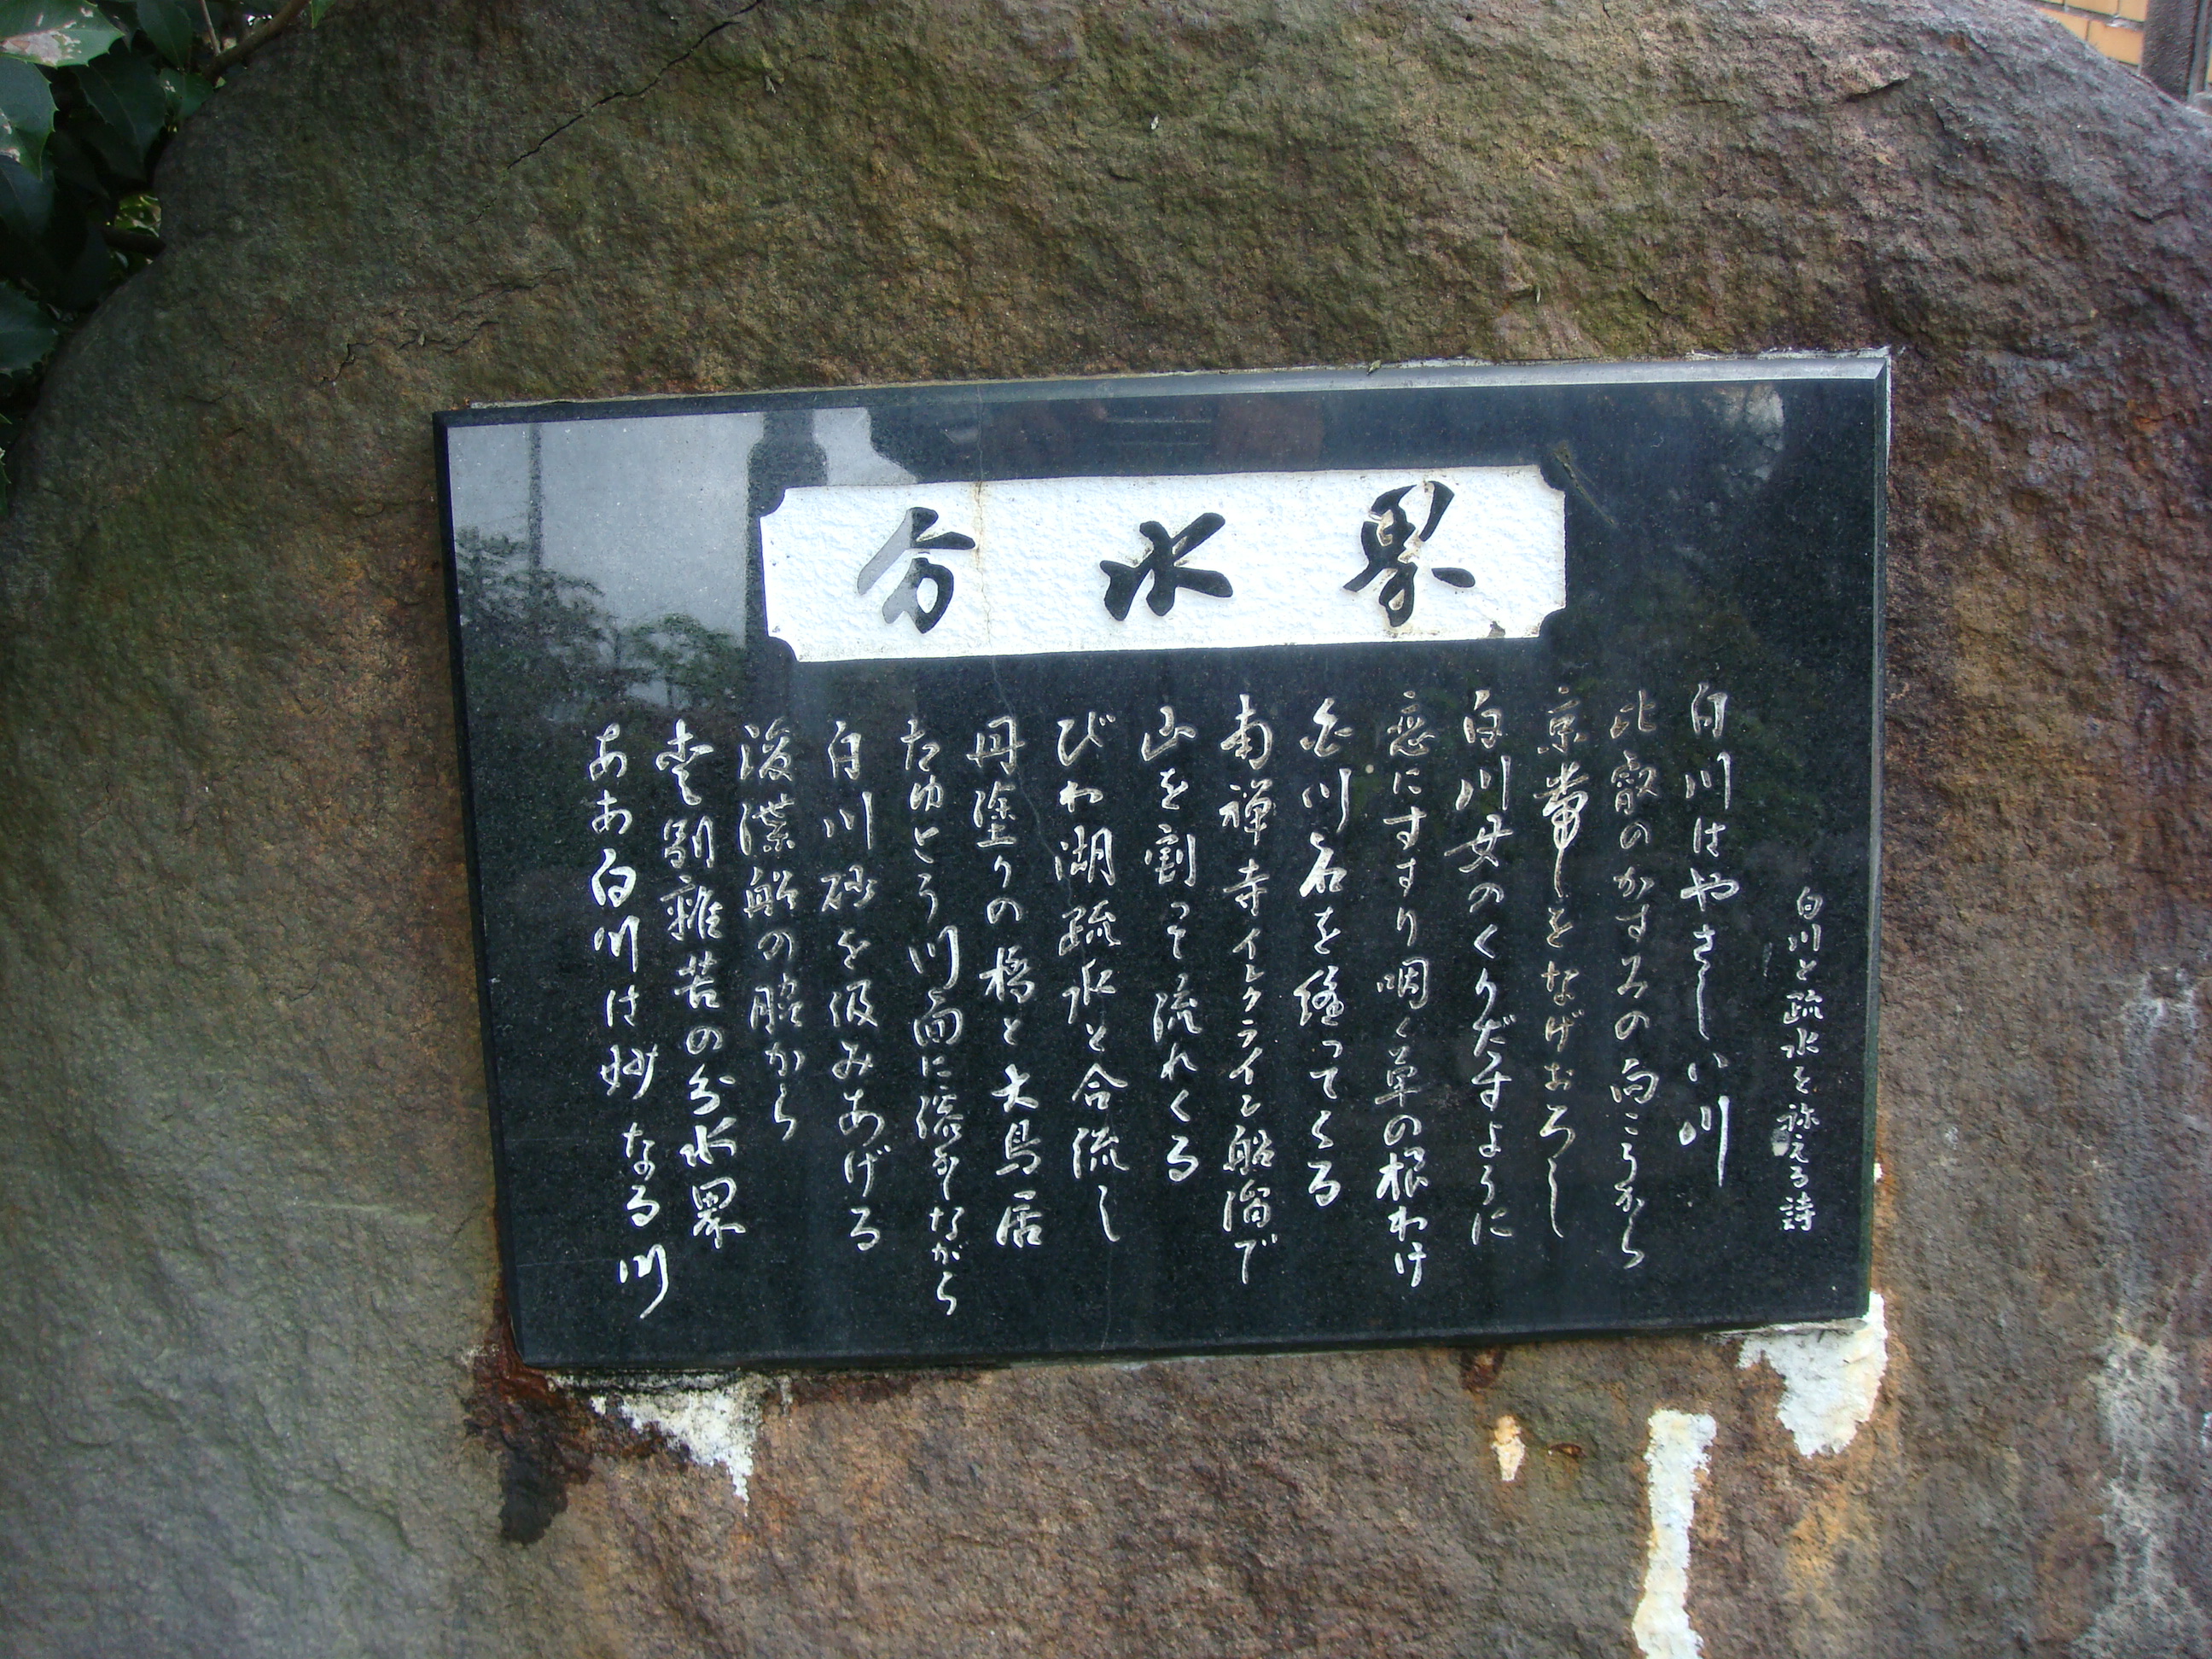 分水界
白川と疏水を称える詩
白川はやさしい川
比叡のかすみの向こうから
京帯しをなげおろし
白川女のくりだすように
恋にすすり咽く草の根わけ
白川石を縫ってくる
南禅寺インクライン船溜で
山を割って流れくる
びわ湖疏水と合流し
丹塗りの橋と大鳥居
たゆとう川面に流しながら
白川砂を汲みあげる
浚渫船の脇から
愛別離苦の分水界
ああ白川は妙なる川